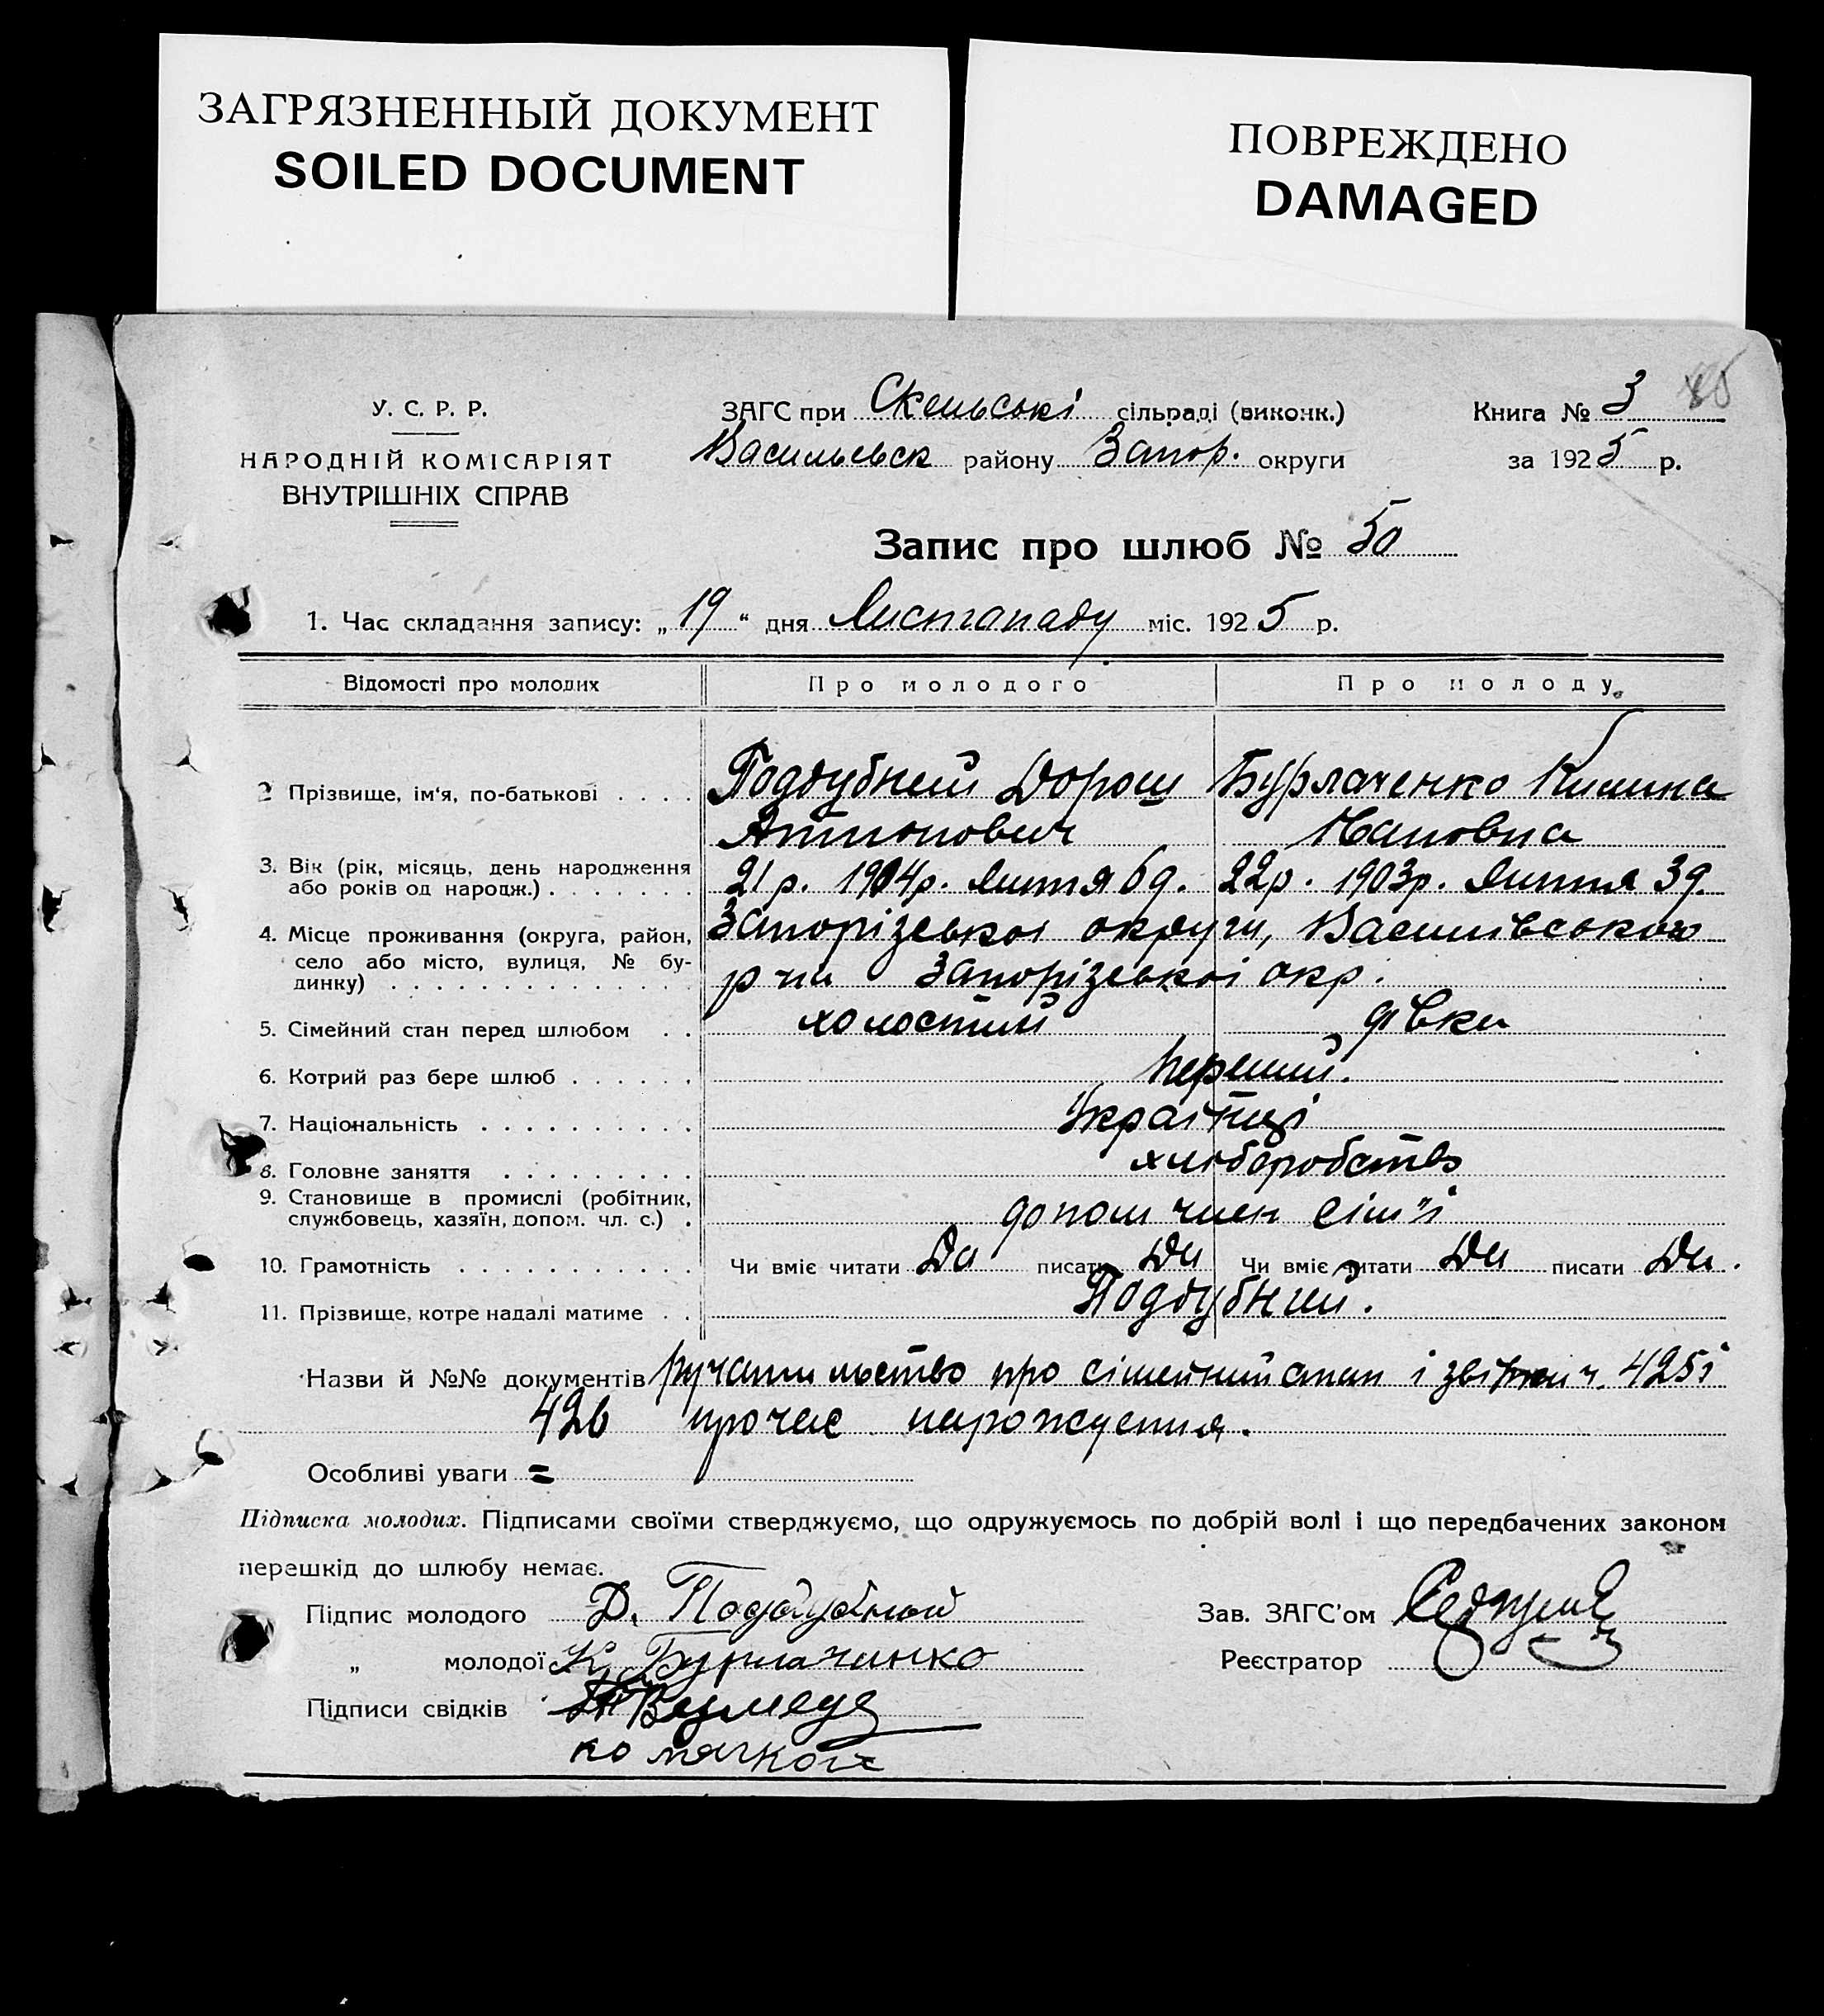 ЗАГРЯЗНЕННЫЙ ДОКУМЕНТ
SOILED DOCUMENT
ПОВРЕЖДЕНО
DAMAGED
У. С. Р. Р.
НАРОДНІЙ КОМІСАРІЯТ
ВНУТРІШНІХ СПРАВ
ЗАГС при Скельські сільраді (виконк.)
Васильевск району Запор. округи
Книга № 3
за 1925 р.
Запис про шлюб № 50
1. Час складання запису: „19“ дня Листопаду міс. 1925 р.
Відомості про молодих Про молодого Про молоду
2 Прізвище, ім'я, по-батькові . . . . Поддубний Дорош Бурлаченко Килина
Антонович
3. Вік (рік, місяць, день народження
або років од народж.) . . . . . . . 21 р. 1904р. Липтя 6д. 22р. 1903р. Липтя 3д.
4. Місце проживання (округа, район, Запорізської округи, Василівського
село або місто, вулиця, № бу-
динку) . . . . . . . . . . . . . . р-ни Запорізської окр.
5. Сімейний стан перед шлюбом . . холостий дівка
6. Котрий раз бере шлюб . . . . . . перший.
7. Національність . . . . . . . . . . Українці
8. Головне заняття . . . . . . . . . хліборобство
9. Становище в промислі (робітник,
службовець, хазяїн, допом. чл. с.) . допом член сім"ї
10. Грамотність . . . . . . . . . . . Чи вміє читати Да писати Да Чи вміє читати Да писати Да.
11. Прізвище, котре надалі матиме . . Поддубний.
Назви й №№ документів ручательство про сімейний стан і ч. 425 і
426 про час нарождения.
Особливі уваги =
Підписка молодих. Підписами своїми стверджуємо, що одружуємось по добрій волі і що передбачених законом
перешкід до шлюбу немає.
Підпис молодого Д. Поддубный
„ молодої К. Бурлачинко
Підписи свідків
Зав. ЗАГС'ом
Реєстратор